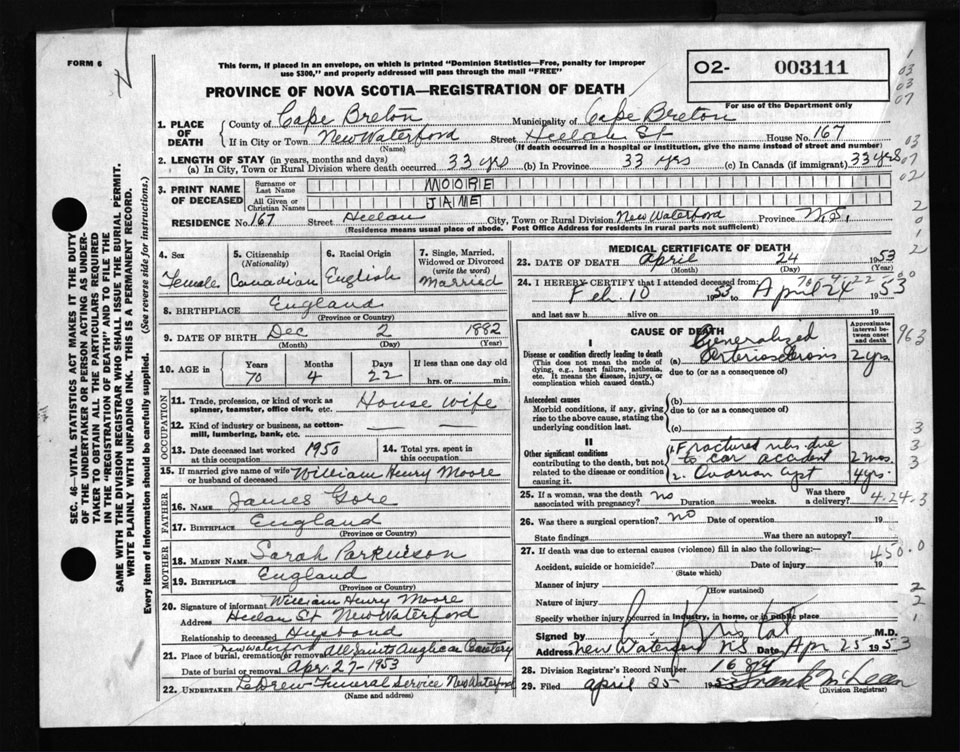 FORM 6
This form, if placed in an envelope, on which is printed "Dominion Statistics—Free, penalty for improper
use $300," and properly addressed will pass through the mail "FREE"
O2- 003111
PROVINCE OF NOVA SCOTIA—REGISTRATION OF DEATH
For use of the Department only
1. PLACE OF DEATH County of Cape Breton Municipality of Cape Breton
If in City or Town New Waterford Street Heelan St House No. 167
(Name) (If death occurred in a hospital or institution, give the name instead of street and number)
2. LENGTH OF STAY (in years, months and days)
(a) In City, Town or Rural Division where death occurred 33 yrs (b) In Province 33 yrs (c) In Canada (if immigrant) 33 yrs
3. PRINT NAME OF DECEASED Surname or Last Name MOORE
All Given or Christian Names JANE
RESIDENCE No. 167 Street Heelan City, Town or Rural Division New Waterford Province N.S.
(Residence means usual place of abode. Post Office Address for residents in rural parts not sufficient)
4. Sex Female
5. Citizenship (Nationality) Canadian
6. Racial Origin English
7. Single, Married, Widowed or Divorced (write the word) Married
8. BIRTHPLACE England
(Province or Country)
9. DATE OF BIRTH Dec 2 1882
(Month) (Day) (Year)
10. AGE in Years 70 Months 4 Days 22 If less than one day old hrs. or min.
OCCUPATION
11. Trade, profession, or kind of work as spinner, teamster, office clerk, etc. House wife
12. Kind of industry or business, as cotton-mill, lumbering, bank, etc. — —
13. Date deceased last worked at this occupation 1950 14. Total yrs. spent in this occupation
15. If married give name of wife or husband of deceased William Henry Moore
FATHER
16. NAME James Gore
17. BIRTHPLACE England
(Province or Country)
MOTHER
18. MAIDEN NAME Sarah Parkinson
19. BIRTHPLACE England
(Province or Country)
20. Signature of informant William Henry Moore
Address Heelan St New Waterford
Relationship to deceased Husband
21. Place of burial, cremation or removal New Waterford All Saints Anglican Cemetery
Date of burial or removal Apr. 27-1953
22. UNDERTAKER LeDrew Funeral Service New Waterford
(Name and address)
MEDICAL CERTIFICATE OF DEATH
23. DATE OF DEATH April 24 1953
(Month) (Day) (Year)
24. I HEREBY CERTIFY that I attended deceased from:
Feb. 10 1953 to April 24 1953
and last saw h alive on 19
CAUSE OF DEATH
Approximate interval between onset and death
I
Disease or condition directly leading to death
(This does not mean the mode of dying, e.g., heart failure, asthenia, etc. It means the disease, injury, or complication which caused death.)
(a) Generalized Arteriosclerosis 2 yrs
due to (or as a consequence of)
Antecedent causes
Morbid conditions, if any, giving rise to the above cause, stating the underlying condition last.
(b)
due to (or as a consequence of)
(c)
II
Other significant conditions
contributing to the death, but not related to the disease or condition causing it.
1. Fractured ribs due
to car accident 2 mos.
2. Ovarian Cyst 4 yrs.
25. If a woman, was the death associated with pregnancy? no Duration weeks. Was there a delivery?
26. Was there a surgical operation? no Date of operation 19
State findings Was there an autopsy?
27. If death was due to external causes (violence) fill in also the following:—
Accident, suicide or homicide? Date of injury 19
(State which)
Manner of injury
(How sustained)
Nature of injury
Specify whether injury occurred in industry, in home, or in public place
Signed by M.D.
Address New Waterford NS Date Apr 25 1953
28. Division Registrar's Record Number
29. Filed April 25 1953
(Division Registrar)
SEC. 46 VITAL STATISTICS ACT MAKES IT THE DUTY
OF THE UNDERTAKER OR PERSON ACTING AS UNDER-
TAKER TO OBTAIN ALL THE PARTICULARS REQUIRED
IN THE "REGISTRATION OF DEATH" AND TO FILE THE
SAME WITH THE DIVISION REGISTRAR WHO SHALL ISSUE THE BURIAL PERMIT.
WRITE PLAINLY WITH UNFADING INK. THIS IS A PERMANENT RECORD.
Every item of information should be carefully supplied. (See reverse side for instructions.)